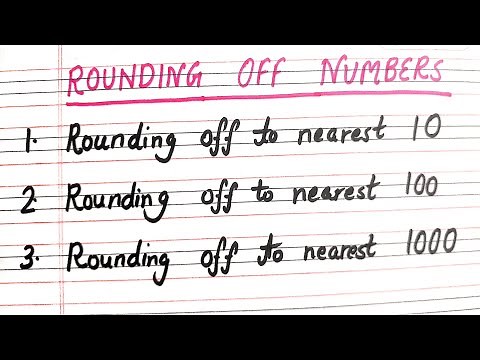 ROUNDING OFF NUMBERS
1. Rounding off to nearest 10
2. Rounding off to nearest 100
3. Rounding off to nearest 1000